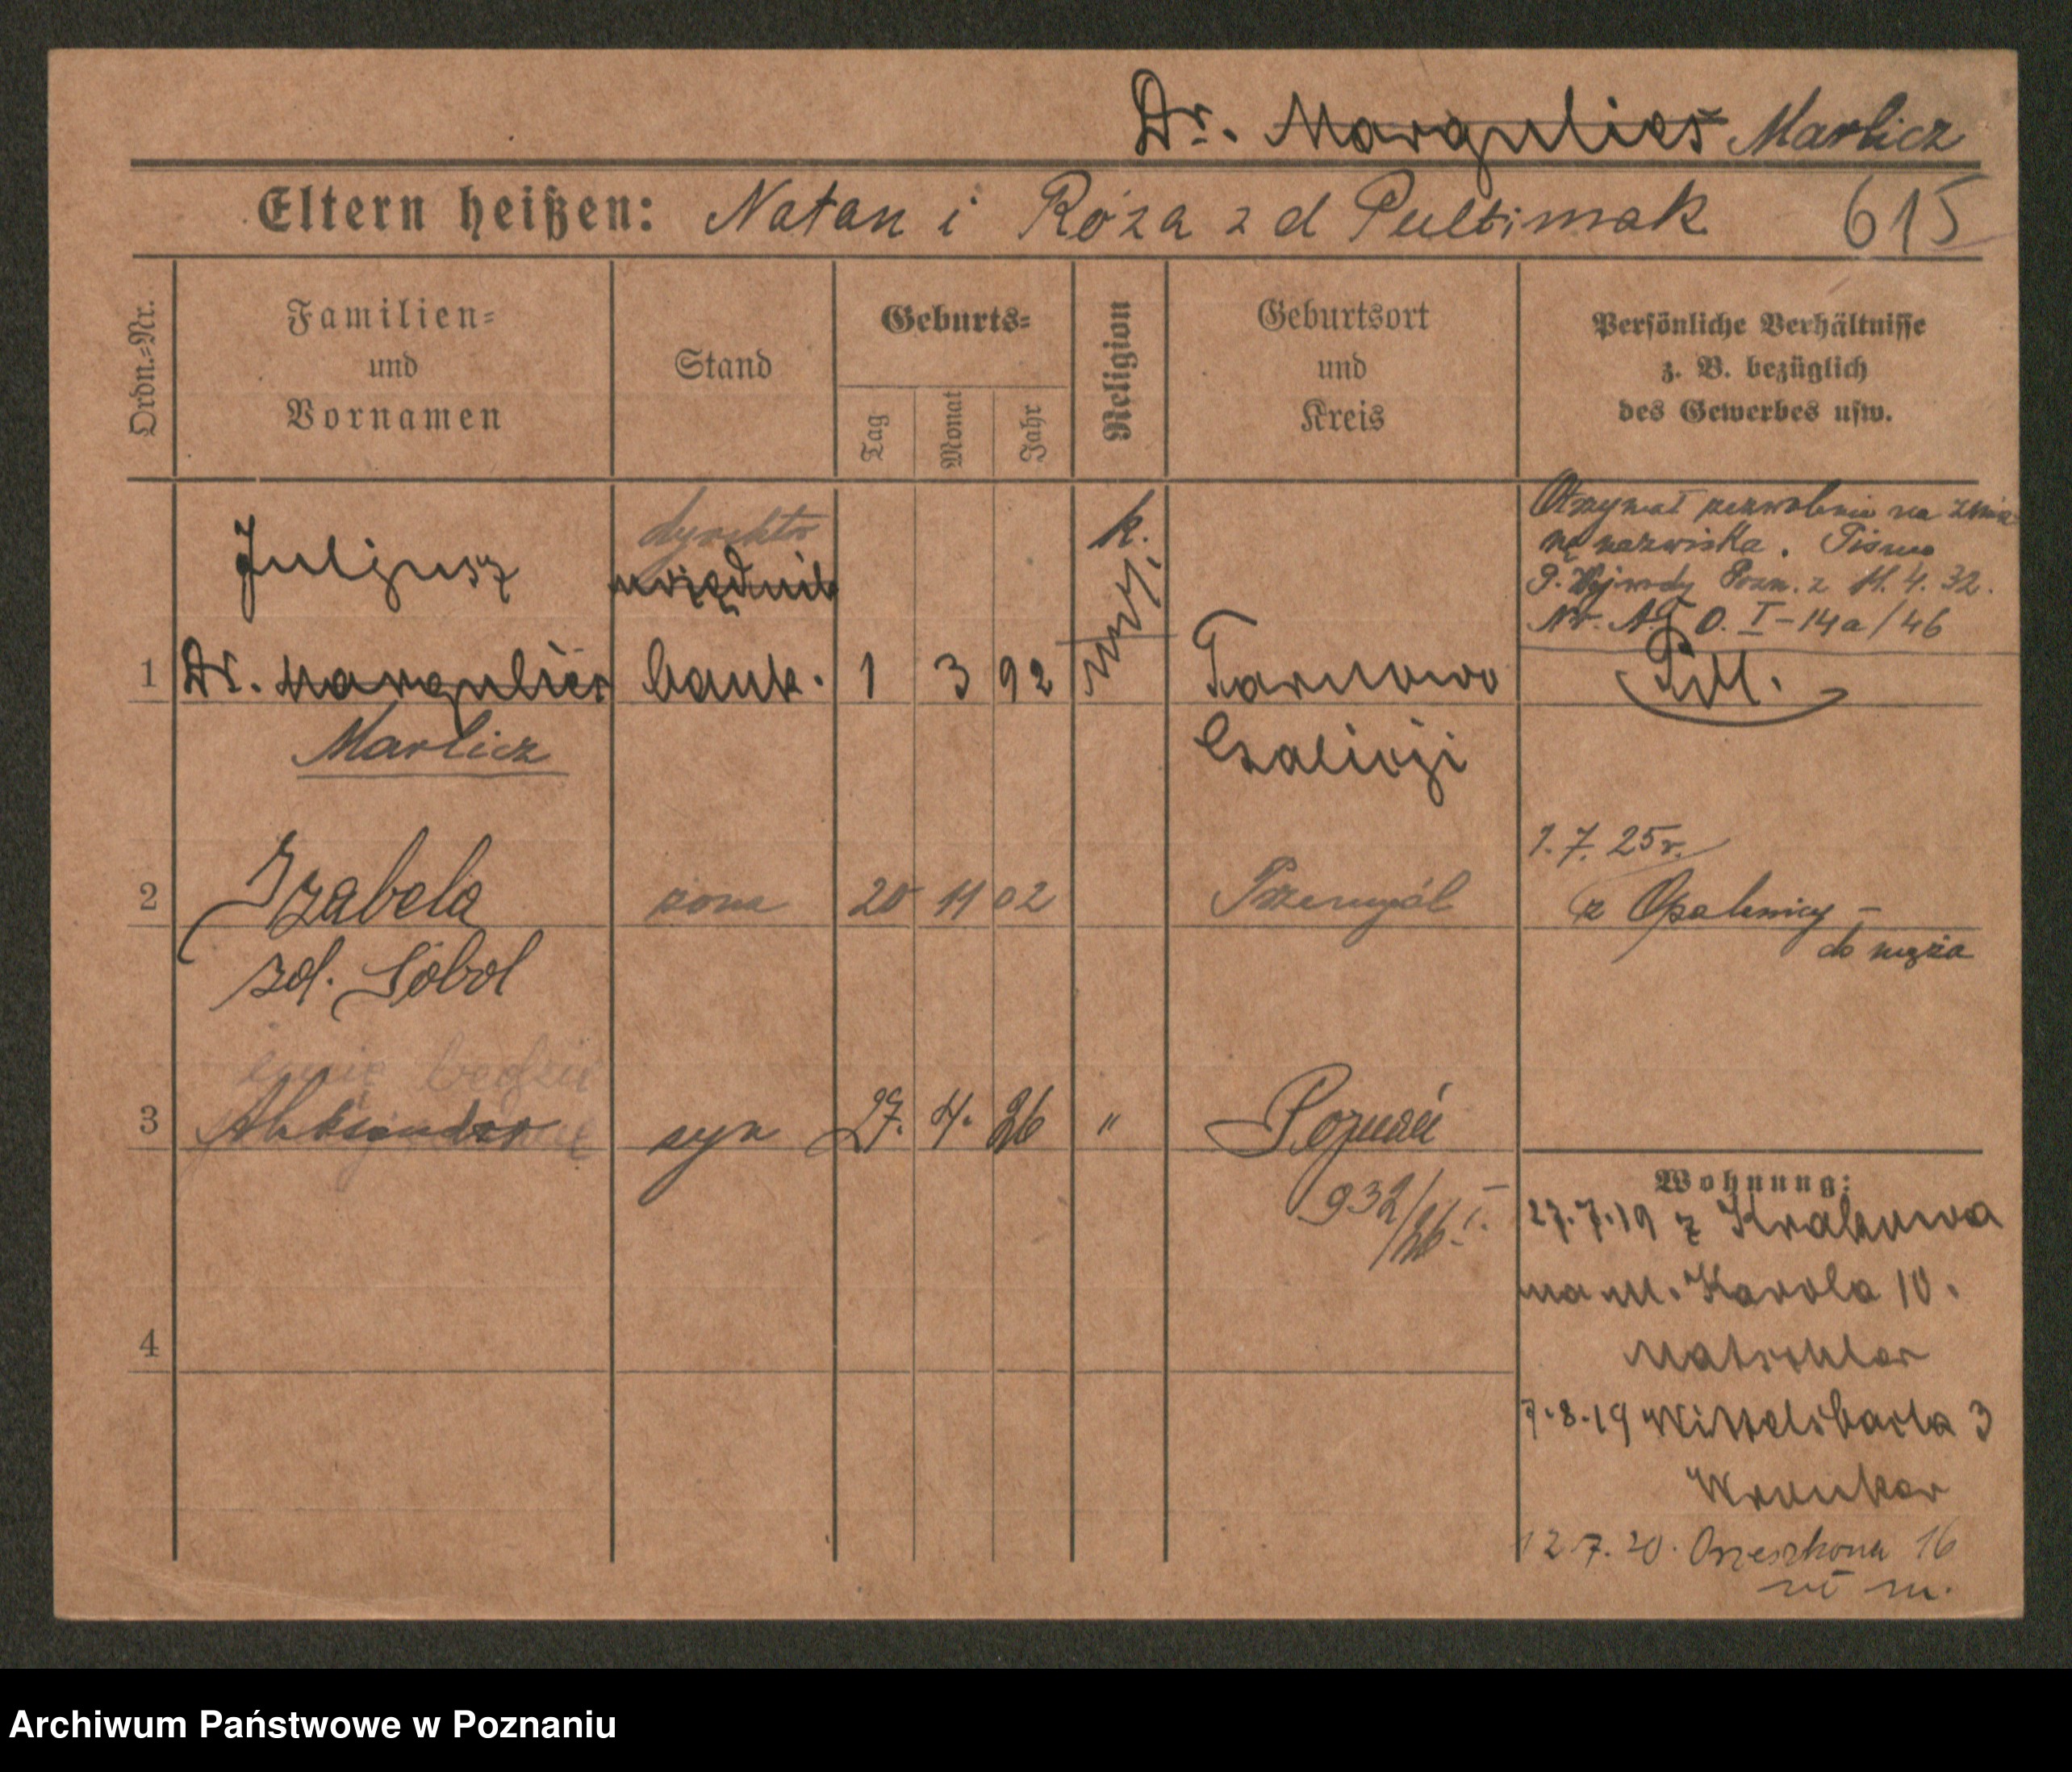 Dr. Margulies Marlicz
Eltern heißen: Natan i Róza z d Pultimak 615
Ordn.=Nr.
Familien=
und
Vornamen
Stand
Geburts=
Tag
Monat
Jahr
Religion
Geburtsort
und
Kreis
Persönliche Verhältnisse
z. B. bezüglich
des Gewerbes usw.
Juljusz
dyrektor
urzędnik
k.
Otrzymał pozwolenie na zmia
nę nazwiska. Pismo
P. Wojewody Pozn. z 11. 4. 32.
Nr. A. O. I-14a/46
1 Dr. Margulies bank. 1 3 92 Tarnowo
Marlicz
Galicji
1. 7. 25 r.
2 Izabela żona 20 11 02 Przemyśl z Opalenicy -
zd. Sobol
do męża
imię będzie
3 Aleksander syn 27. 4. 26 " Poznań
932/26. I.
Wohnung:
27.7.19 z Krakowa
na ul. Karola 10.
4
7.8.19 Wittelsbacha 3
12.7.20. Orzeszkowa 16
Archiwum Państwowe w Poznaniu